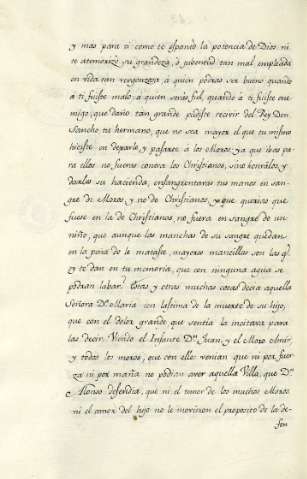 y mas para ti como te espondò la potencia de Dios ni
te atemorizò su grandeza, ò juventud tan mal empleada
en vida tan vergonzosa à quien podras ser bueno quando
à ti fuiste malo, à quien seràs fiel, quando à ti fuiste ene
migo, que daño tan grande pudiste recivir del Rey Don
Sancho tu hermano, que no sea mayor el que tu mismo
hiciste en dexarlo, y pasarte à los Moros, ya que ibas pa
ra ellos no fueras contra los Christianos, sino honralos, y
dexalos su hacienda, ensangrentaras tus manos en san
gre de Moros y no de Christianos, y que querias que
fuese en la de Christianos no fuera en sangre de un
niño, que aunque las manchas de su sangre quedan
en la peña do le mataste, mayores mancillas son las q.^e
y te dan en tu memoria, que con ninguna agua se
podran labar. Estas y otras muchas cosas decia aquella
Señora D.^a Maria con lastima de la muerte de su hijo,
que con el dolor grande que sentia la incitava para
las decir. Viendo el Infante D.^n Juan, y el Moro Amir,
y todos los moros, que con ellos venian que ni por fuer
za ni por maña no podian aver aquella Villa, que D.^n
Alonso defendia, que ni el temor de los muchos Moros
ni el amor del hijo no le movieron el proposito de la de
fen